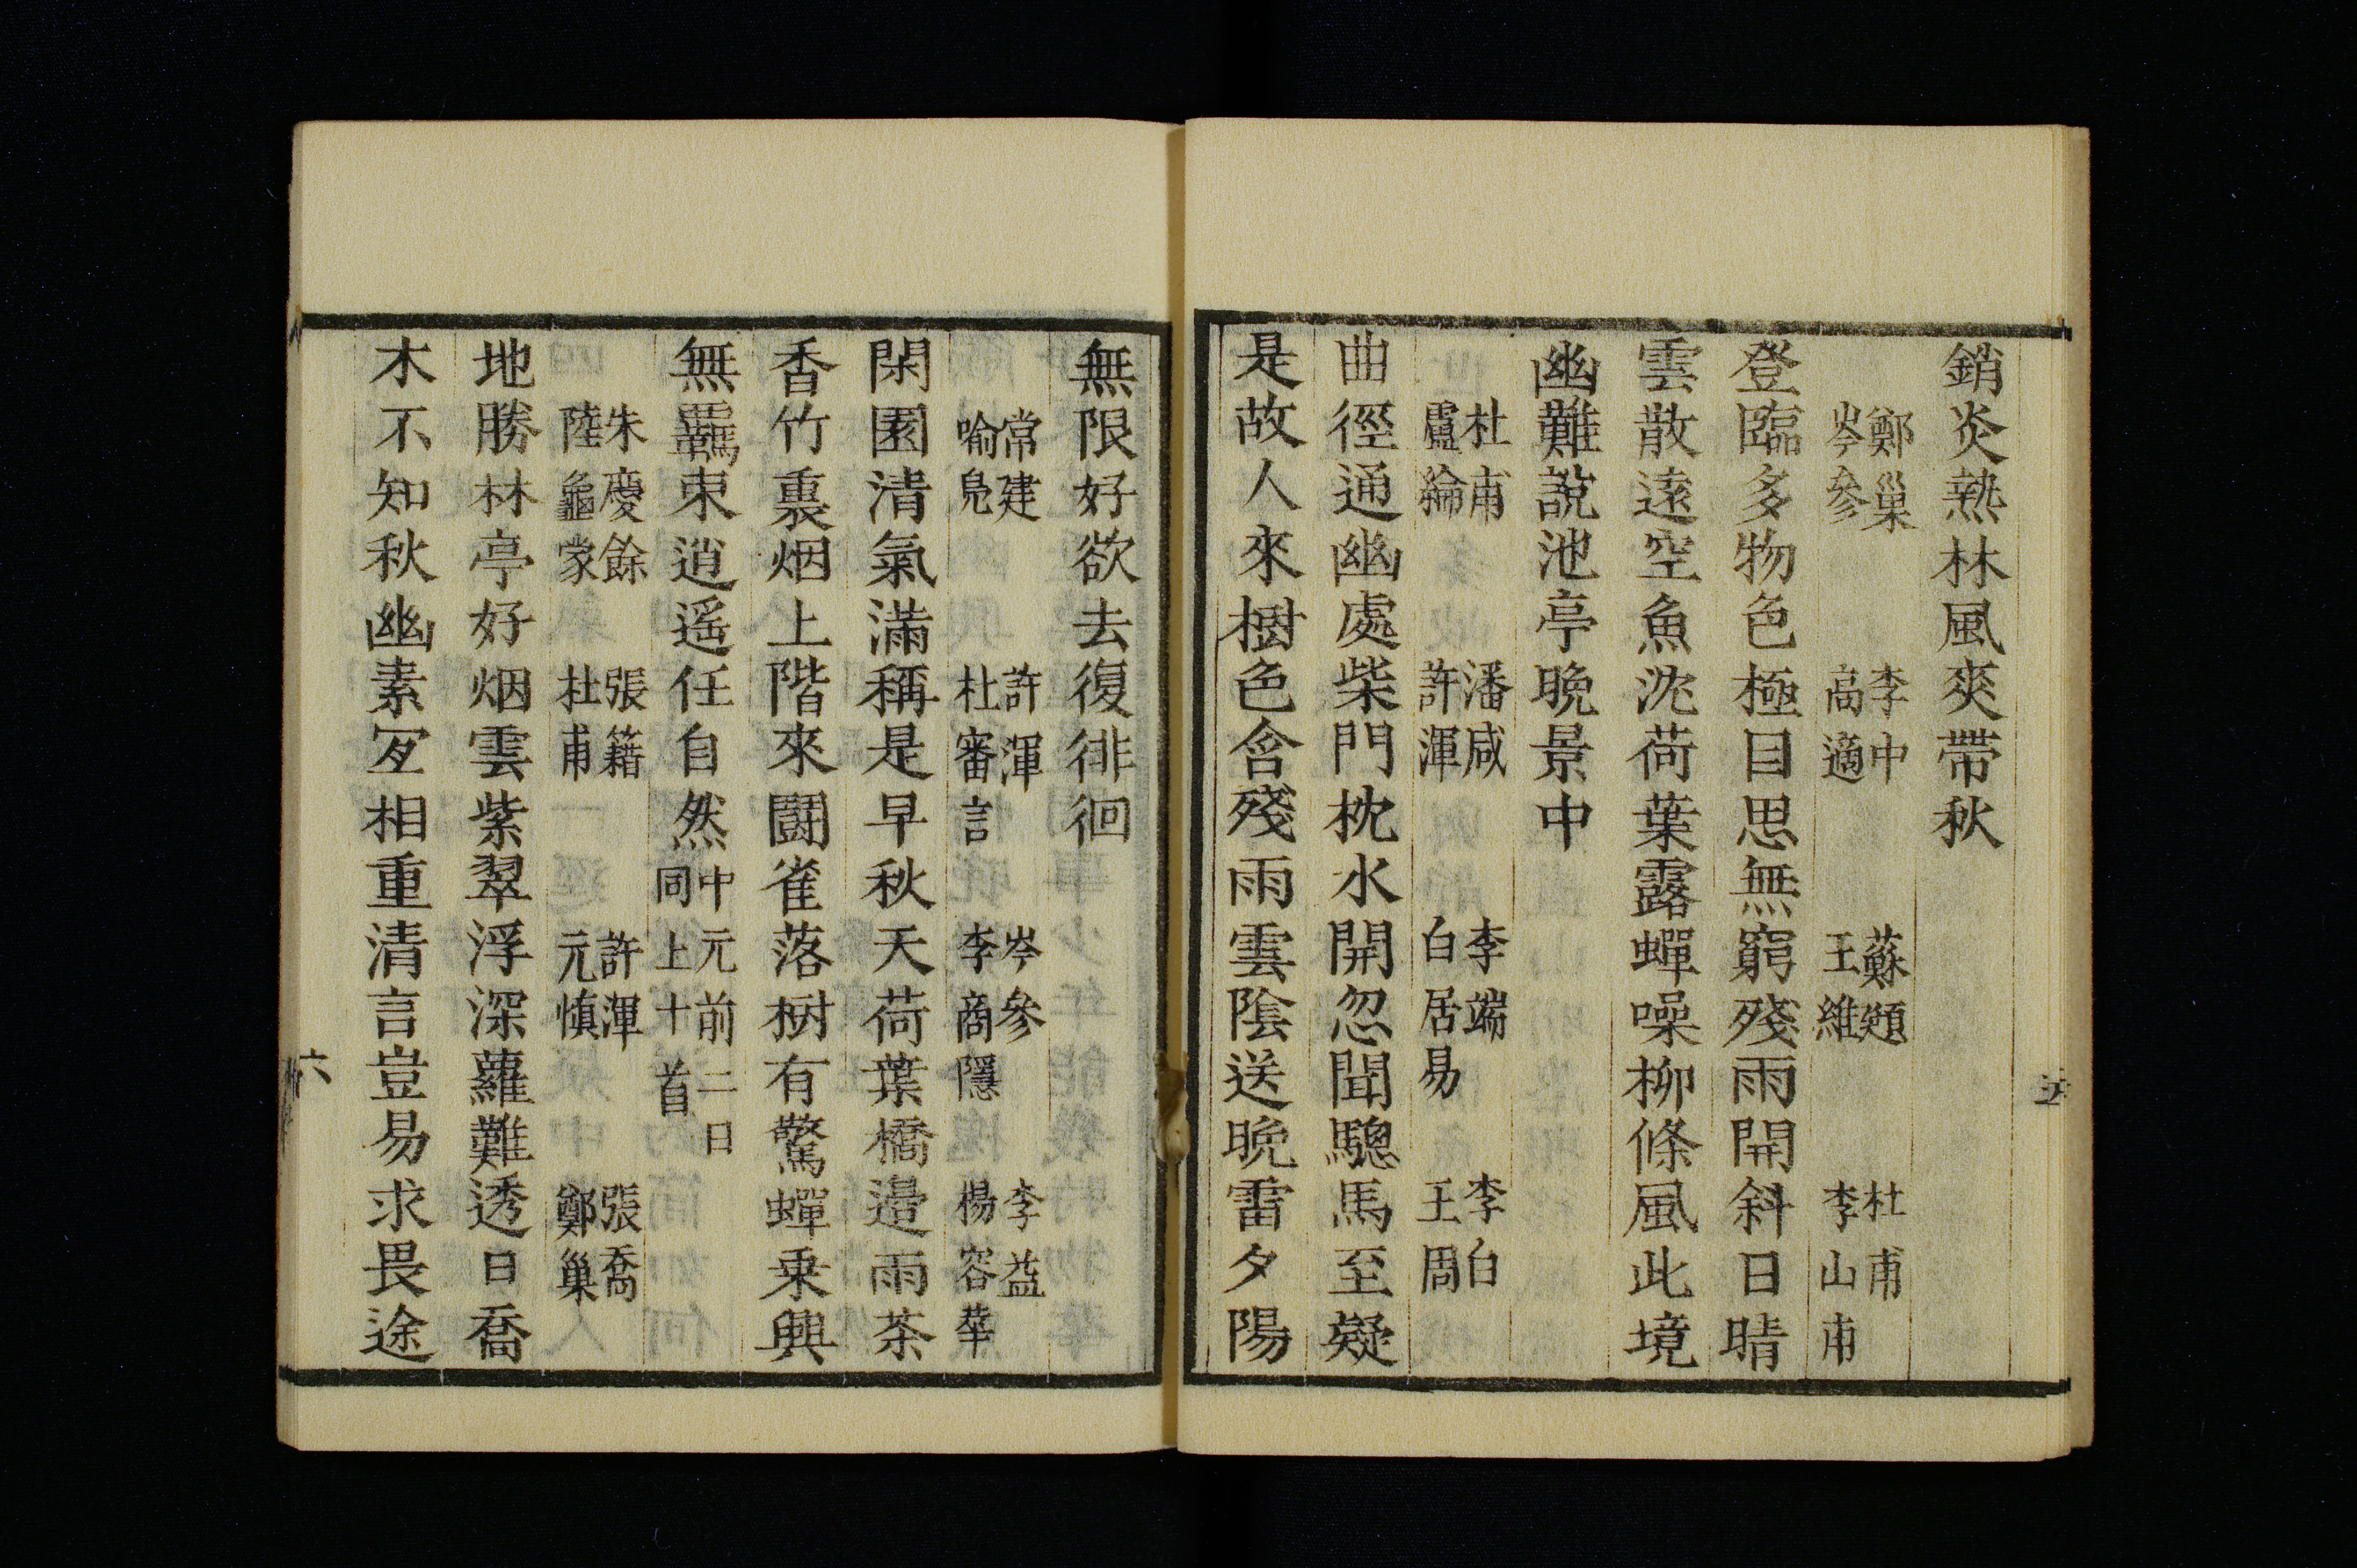 銷炎熱林風爽帶秋
鄭巢 李中 蘇頲 杜甫
岑參 高適 王維 李山甫
登臨多物色極目思無窮殘雨開斜日晴
雲散遠空魚沈荷葉露蟬噪柳條風此境
幽難說池亭晚景中
杜甫 潘咸 李端 李白
盧綸 許渾 白居易 王周
曲徑通幽處柴門枕水開忽聞驄馬至疑
是故人來樹色含殘雨雲陰送晚雷夕陽
無限好欲去復徘徊
常建 許渾 岑參 李益
喻鳧 杜審言 李商隱 楊容華
閑園清氣滿稱是早秋天荷葉橋邊雨茶
香竹裏烟上階來鬬雀落樹有驚蟬乗興
無羈束逍遥任自然
中元前二日
同上十首
朱慶餘 張籍 許渾 張喬
陸龜蒙 杜甫 元慎 鄭巢
地勝林亭好烟雲紫翠浮深蘿難透日喬
木不知秋幽素冝相重清言豈易求畏途
六